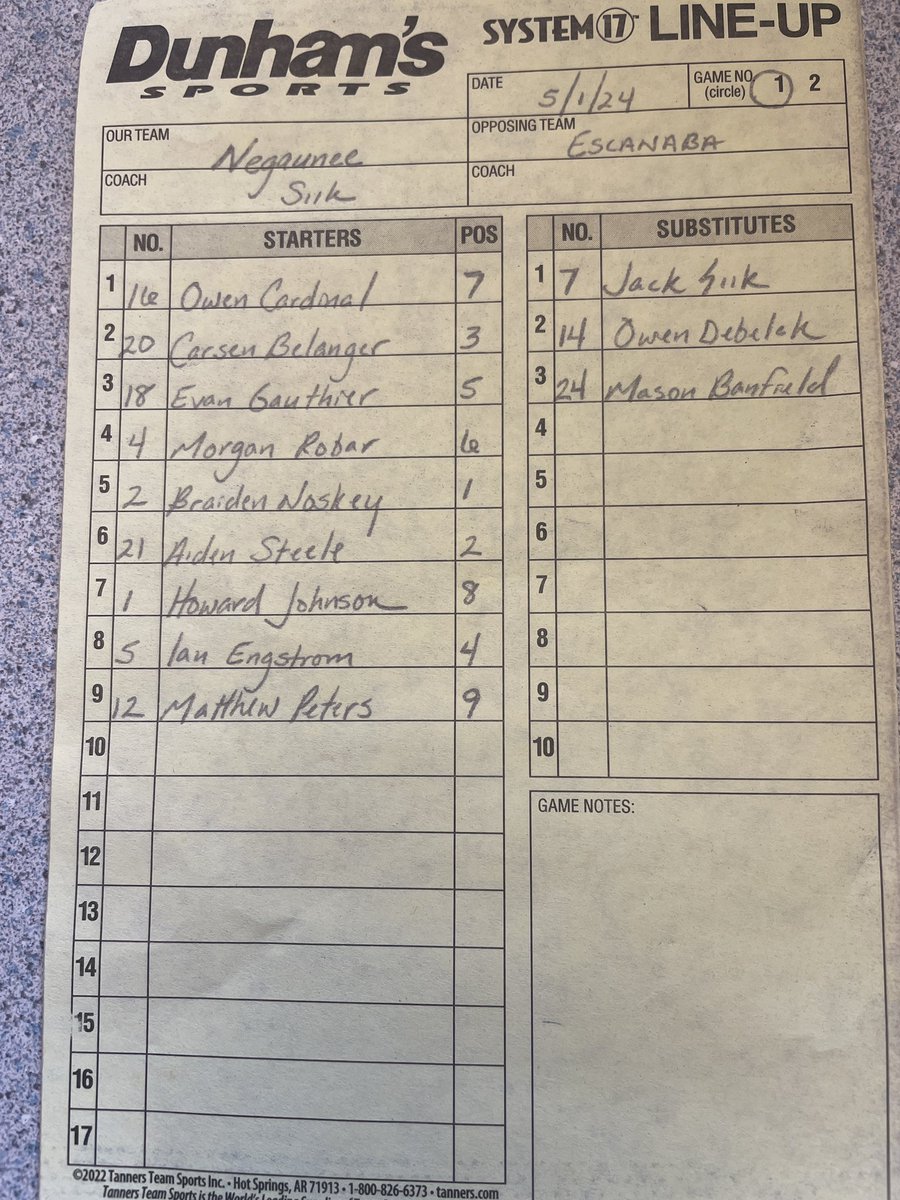 Dunham's
SPORTS
SYSTEM 17™ LINE-UP
DATE 5/1/24
GAME NO. (circle) 1 2
OUR TEAM Negaunee
OPPOSING TEAM ESCANABA
COACH Siik
COACH
NO. STARTERS POS
1 16 Owen Cardinal 7
2 20 Carsen Belanger 3
3 18 Evan Gauthier 5
4 4 Morgan Robar 6
5 2 Braiden Naskey 1
6 21 Aiden Steele 2
7 1 Howard Johnson 8
8 5 Ian Engstrom 4
9 12 Matthew Peters 9
10
11
12
13
14
15
16
17
NO. SUBSTITUTES
1 7 Jack Siik
2 14 Owen Debelak
3 24 Mason Banfield
4
5
6
7
8
9
10
GAME NOTES:
©2022 Tanners Team Sports Inc. • Hot Springs, AR 71913 • 1-800-826-6373 • tanners.com
Tanners Team Sports is the World's